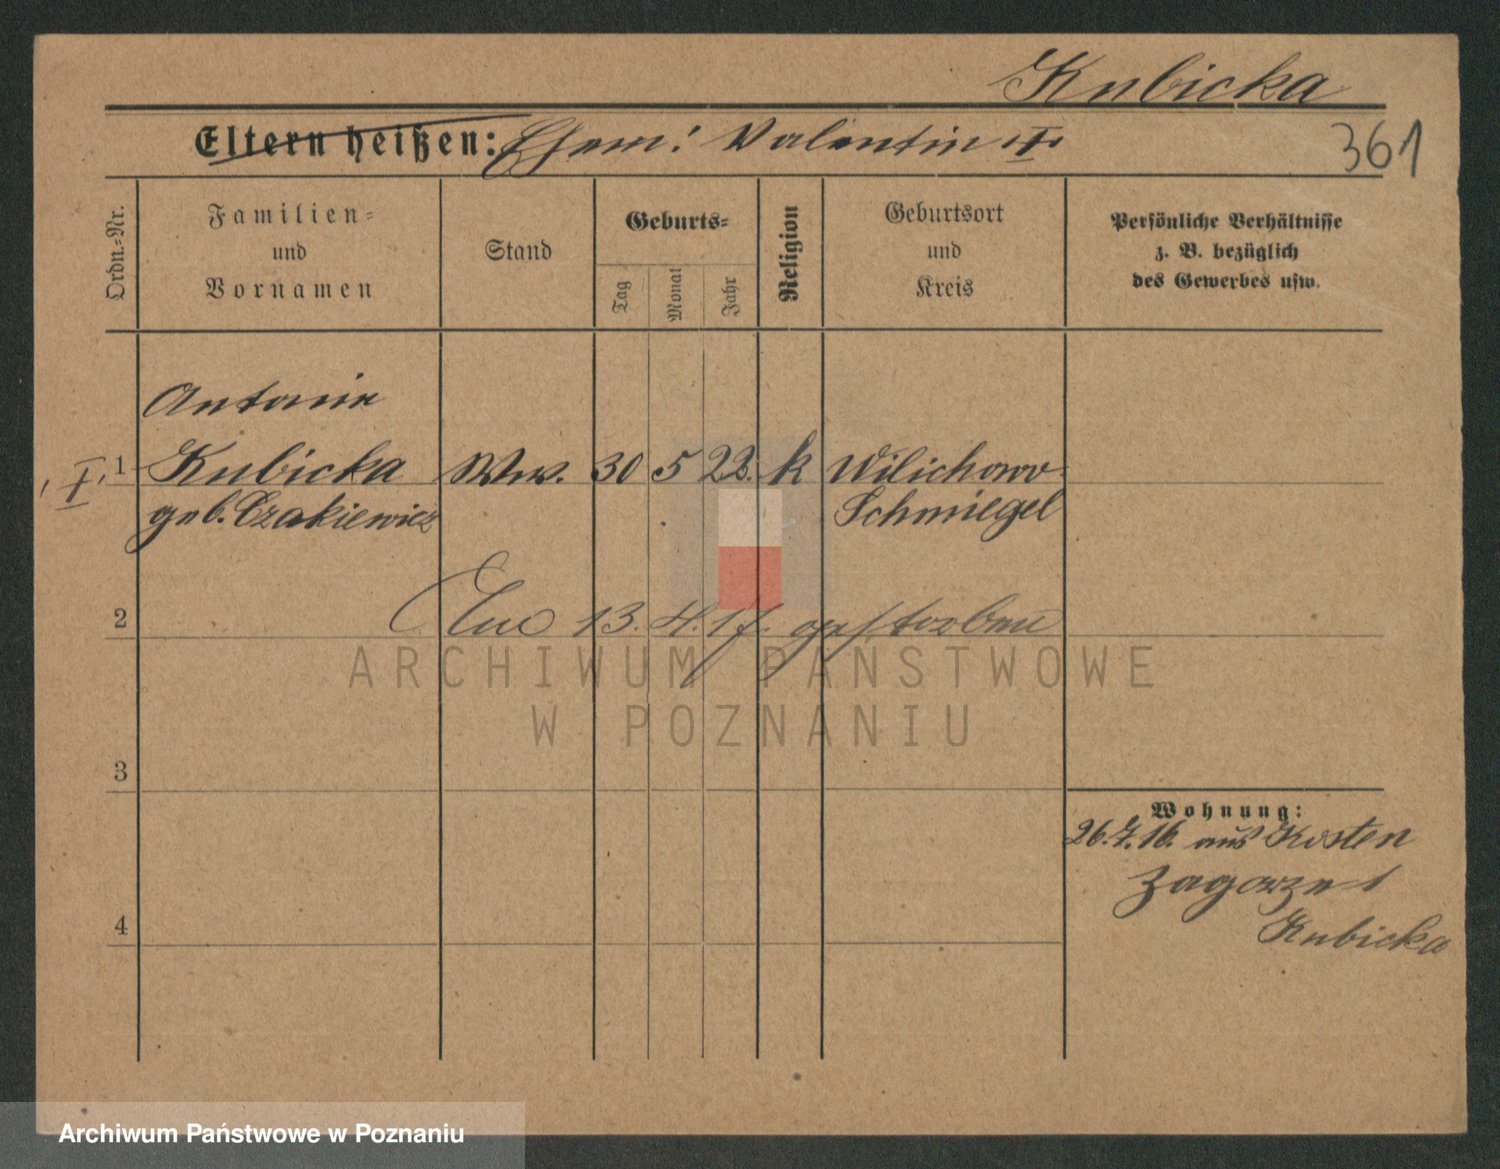 Kubicka
Eltern heißen: Ehem: Valentin †
361
Ordn.-Nr.
Familien-
und
Vornamen
Stand
Geburts-
Tag
Monat
Jahr
Religion
Geburtsort
und
Kreis
Persönliche Verhältnisse
z. B. bezüglich
des Gewerbes usw.
Antonie
I, 1 Kubicka Ww. 30 5 22. k Wilichowo
geb. Czakiewicz Schmiegel
2 Am 13. 4. 17. gestorben
ARCHIWUM PAŃSTWOWE
W POZNANIU
3
Wohnung:
26.7.16. aus Kosten
Zagorze 1
4
Kubicka
Archiwum Państwowe w Poznaniu